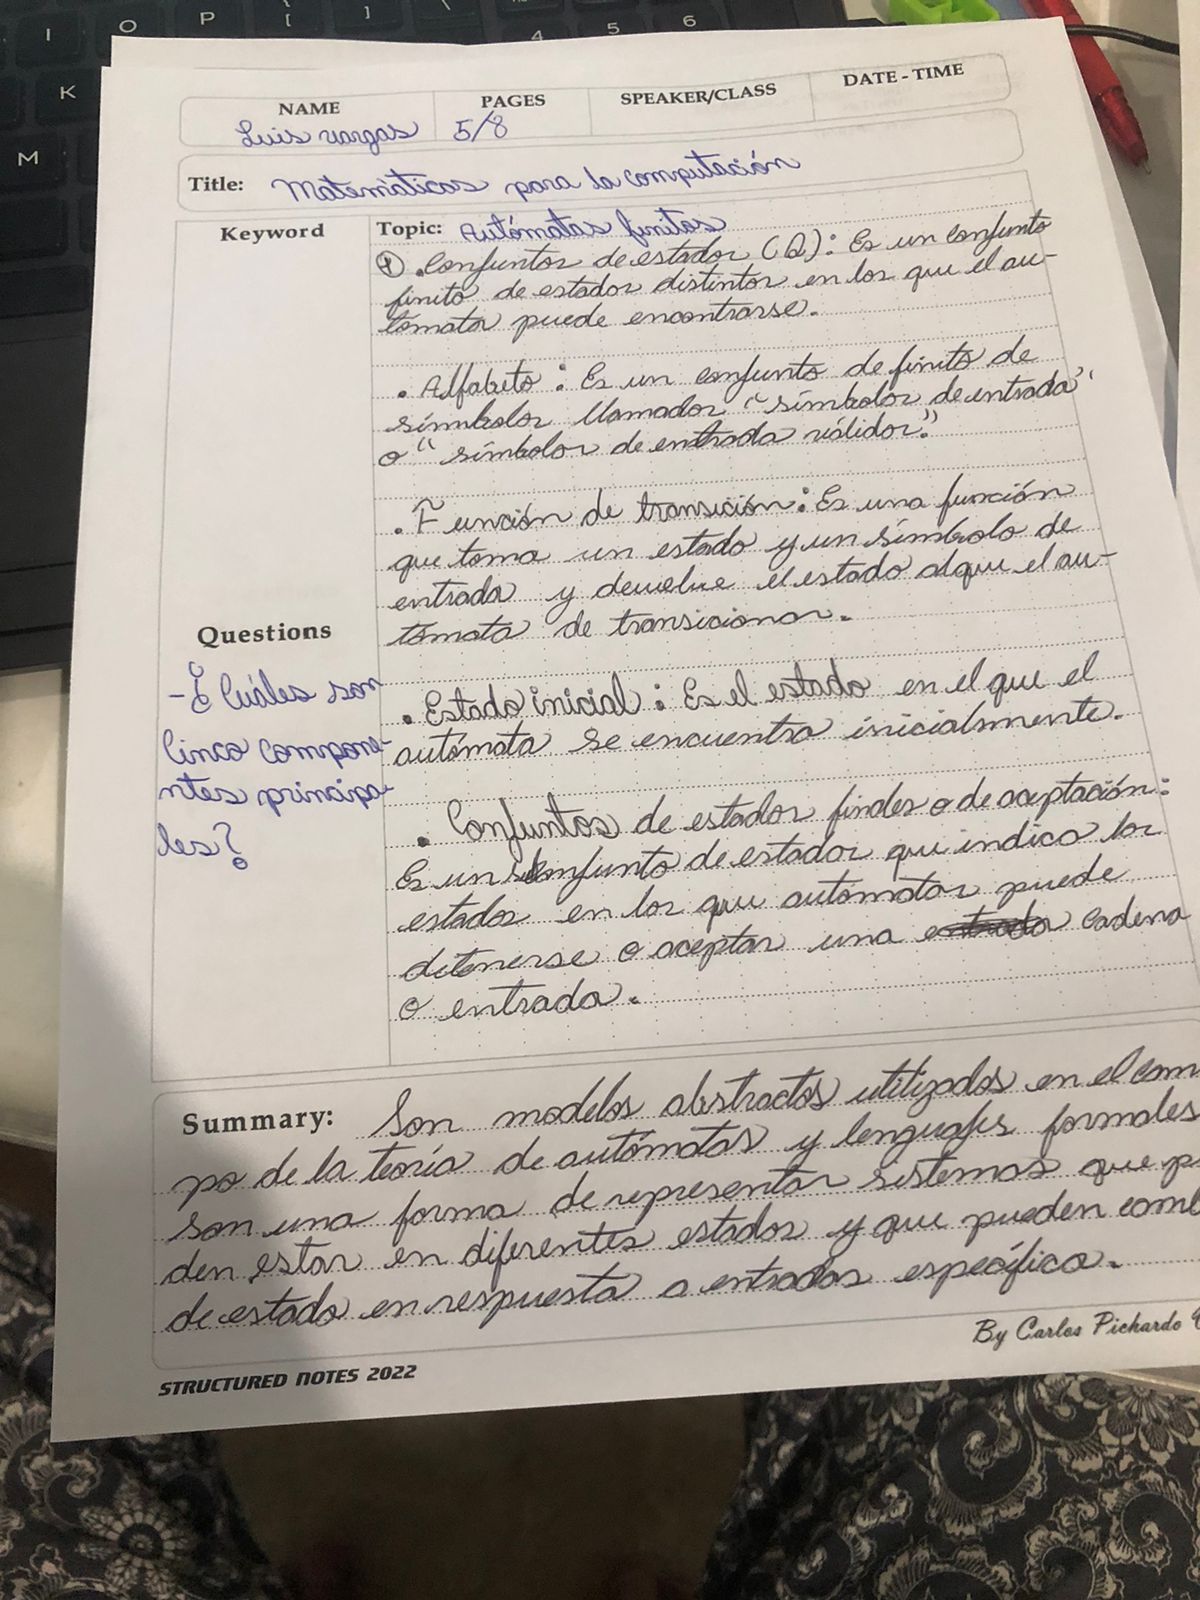 NAME PAGES SPEAKER/CLASS DATE - TIME
Luis vargas 5/8
Title: Matemáticas para la computación
Keyword
Topic: Autómatas finitos
. Conjuntos de estados (Q): Es un conjunto
finito de estados distintos en los que el au-
tómata puede encontrarse.
. Alfabeto: Es un conjunto de finito de
símbolos llamados "símbolos de entrada"
o "símbolos de entrada válidos."
. Función de transición: Es una función
que toma un estado y un símbolo de
entrada y devuelve el estado al que el au-
tómata de transicionar.
. Estado inicial: Es el estado en el que el
autómata se encuentra inicialmente.
. Conjuntos de estados finales o de aceptación:
Es un conjunto de estados que indica los
estados en los que automatas puede
detenerse o aceptar una cadena
o entrada.
Questions
- ¿Cuáles son
cinco compone-
ntes principa-
les?
Summary: Son modelos abstractos utilizados en el cam
po de la teoría de autómatas y lenguajes formales
son una forma de representar sistemas que p
den estar en diferentes estados y que pueden camb
de estado en respuesta a entradas específica.
By Carlos Pichardo
STRUCTURED NOTES 2022
I O P { [ } ] 4 5 6
K
M